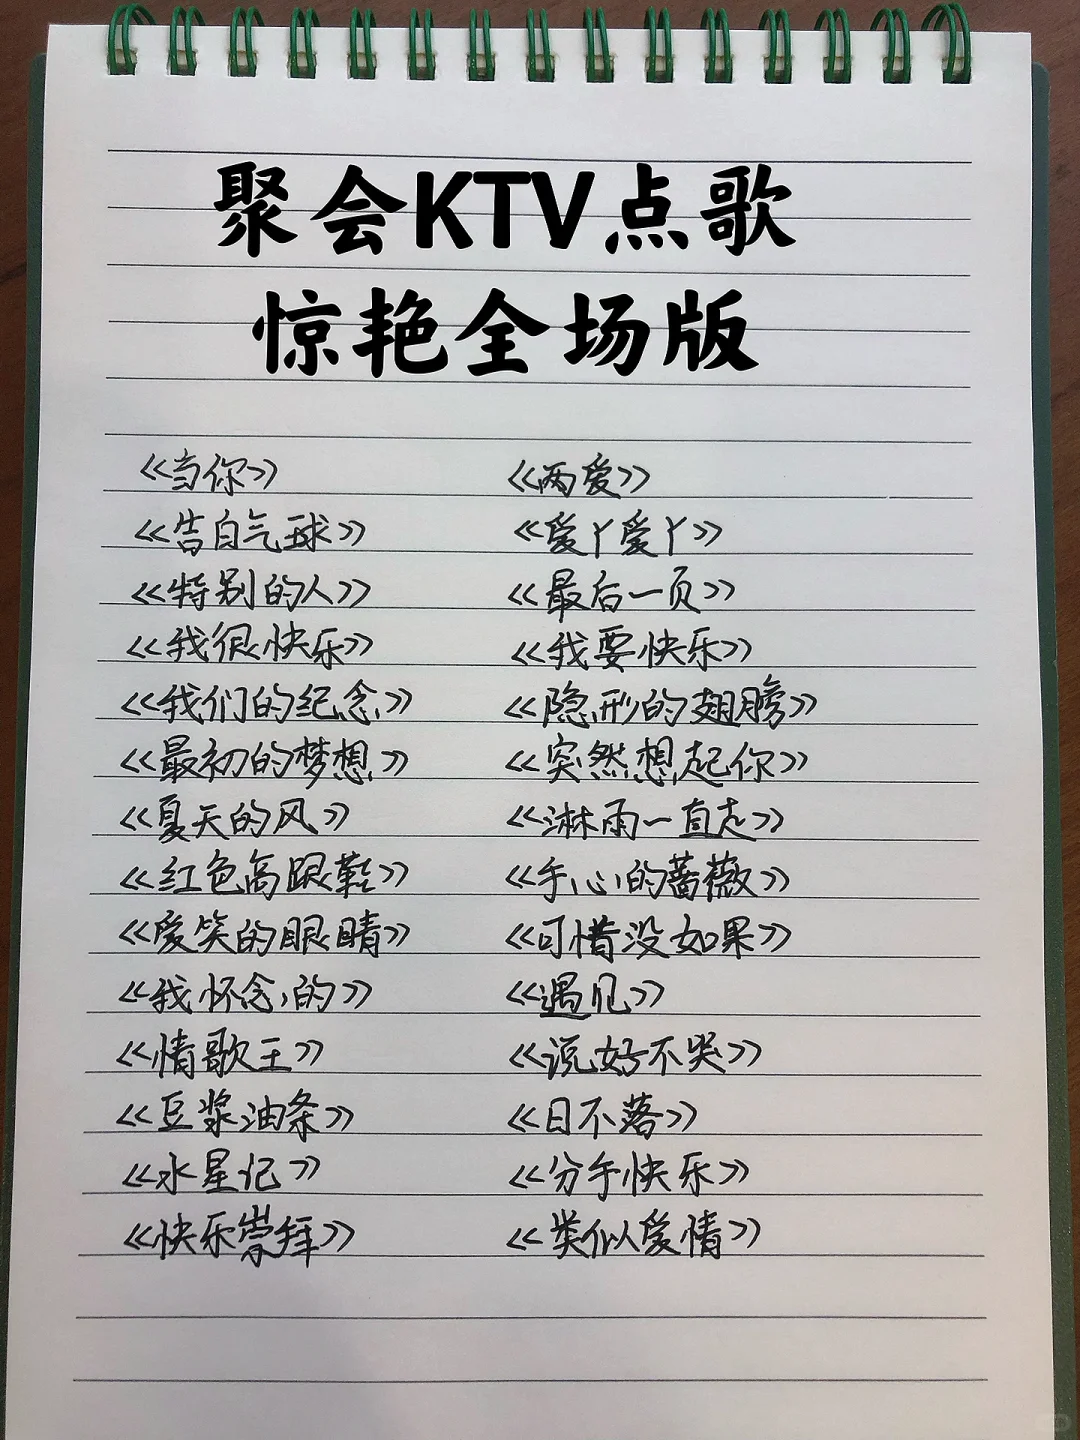 聚会KTV点歌
惊艳全场版
《当你》 《两爱》
《告白气球》 《爱丫爱丫》
《特别的人》 《最后一页》
《我很快乐》 《我要快乐》
《我们的纪念》 《隐形的翅膀》
《最初的梦想》 《突然想起你》
《夏天的风》 《淋雨一直走》
《红色高跟鞋》 《手心的蔷薇》
《爱笑的眼睛》 《可惜没如果》
《我怀念的》 《遇见》
《情歌王》 《说好不哭》
《豆浆油条》 《日不落》
《水星记》 《分手快乐》
《快乐崇拜》 《类似爱情》